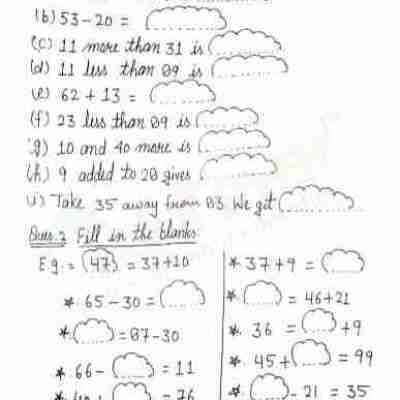 (b) 53-20 =
(c) 11 more than 31 is
(d) 11 less than 89 is
(e) 62 + 13 =
(f) 23 less than 89 is
(g) 10 and 40 more is
(h) 9 added to 20 gives
(i) Take 35 away from 83. We get
Ques.2 Fill in the blanks.
E.g. = 47 = 37+10
* 65 - 30 =
* = 87-30
* 66- = 11
= 76
* 37+9 =
* = 46+21
* 36 = +9
* 45+ = 99
* - 21 = 35